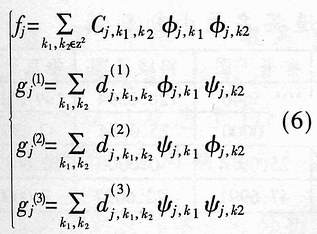 f_j = ∑_{k_1,k_2∈z^2} C_{j,k_1,k_2} ϕ_{j,k_1} ϕ_{j,k2}
g_j^{(1)} = ∑_{k_1,k_2} d_{j,k_1,k_2}^{(1)} ϕ_{j,k_1} ψ_{j,k2}
g_j^{(2)} = ∑_{k_1,k_2} d_{j,k_1,k_2}^{(2)} ψ_{j,k_1} ϕ_{j,k2}
(6)
g_j^{(3)} = ∑_{k_1,k_2} d_{j,k_1,k_2}^{(3)} ψ_{j,k_1} ψ_{j,k2}